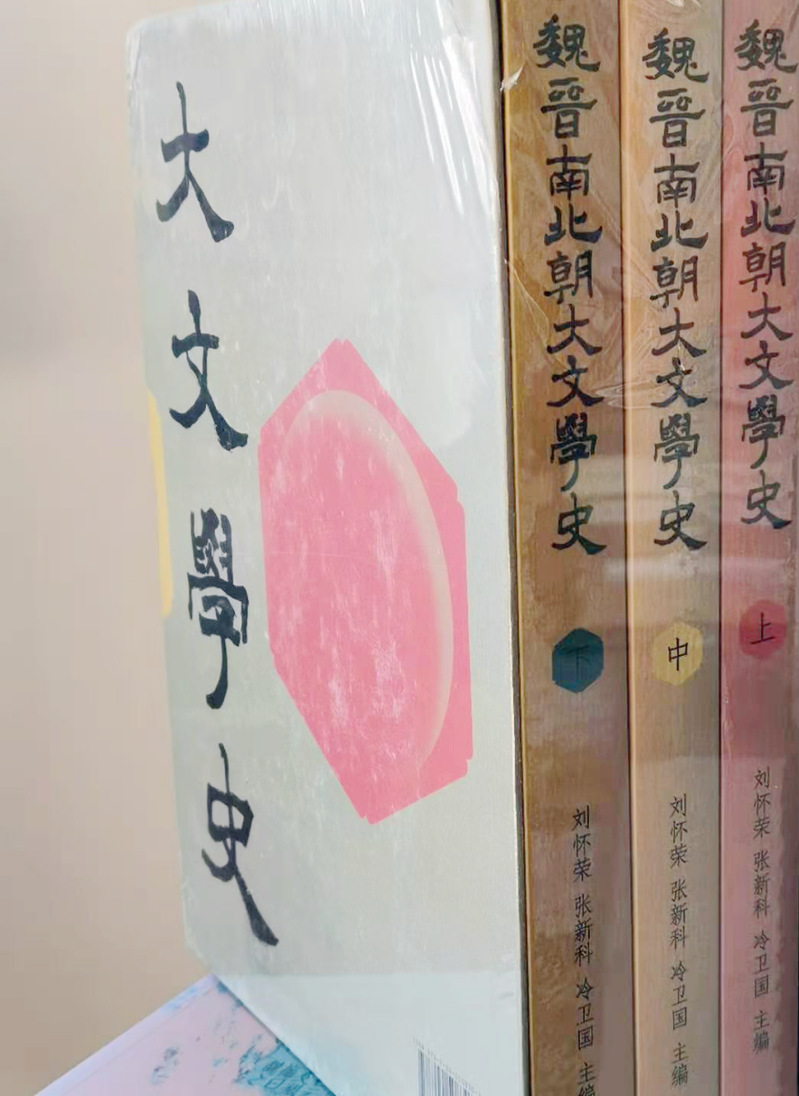 大文學史
魏晉南北朝大文學史
下
刘怀荣 张新科 冷卫国 主编
魏晉南北朝大文學史
中
刘怀荣 张新科 冷卫国 主编
魏晉南北朝大文學史
上
刘怀荣 张新科 冷卫国 主编